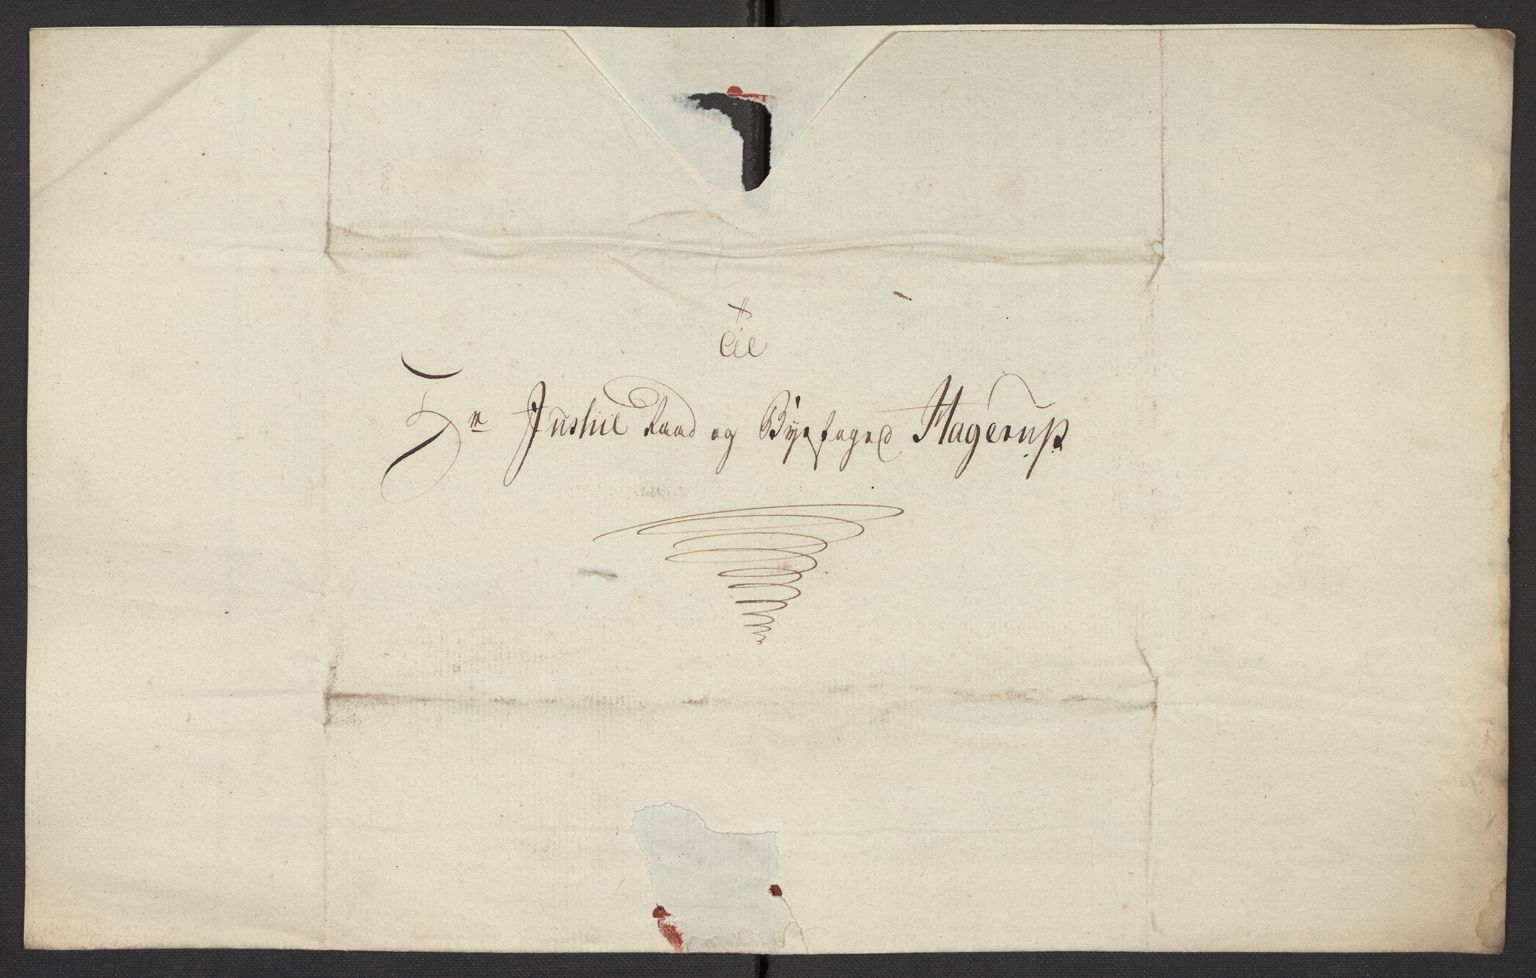 Til
Hr Justice Raad og Byefoged Hagerup